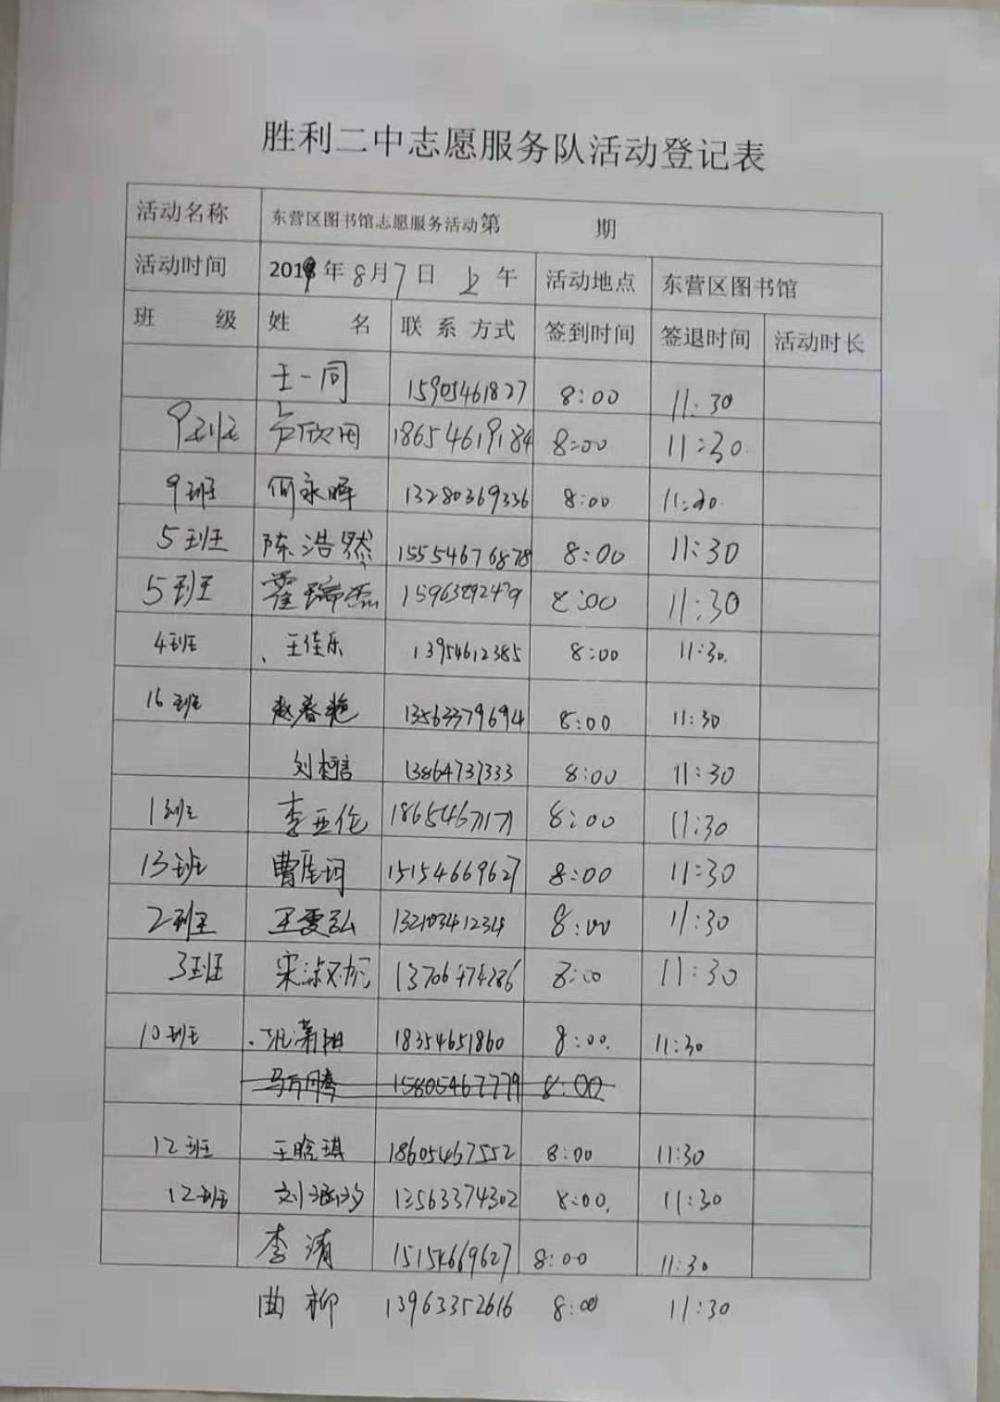 胜利二中志愿服务队活动登记表
活动名称 东营区图书馆志愿服务活动第 期
活动时间 2019年8月7日 上午 活动地点 东营区图书馆
班 级 姓 名 联系方式 签到时间 签退时间 活动时长
王一同 15905461827 8:00 11:30
9班 18654619184 8:00 11:30
9班 何永晖 13280369336 8:00
5班 陈浩然 15554676878 8:00 11:30
5班 霍瑞杰 8:00 11:30
4班 王佳乐 13954612385 8:00 11:30
16班 赵春艳 13563379694 8:00 11:30
刘 13864737333 8:00 11:30
1班 李亚伦 18654671171 8:00 11:30
13班 曹 15154669627 8:00 11:30
2班 王雯弘 13210341234 8:00 11:30
3班 宋 13706474286 8:00 11:30
10班 18354651860 8:00 11:30
马万腾 15805467779 8:00
12班 王晗琪 18605467552 8:00 11:30
12班 刘涵汐 13563374302 8:00 11:30
李清 15154669627 8:00 11:30
曲柳 13963352616 8:00 11:30